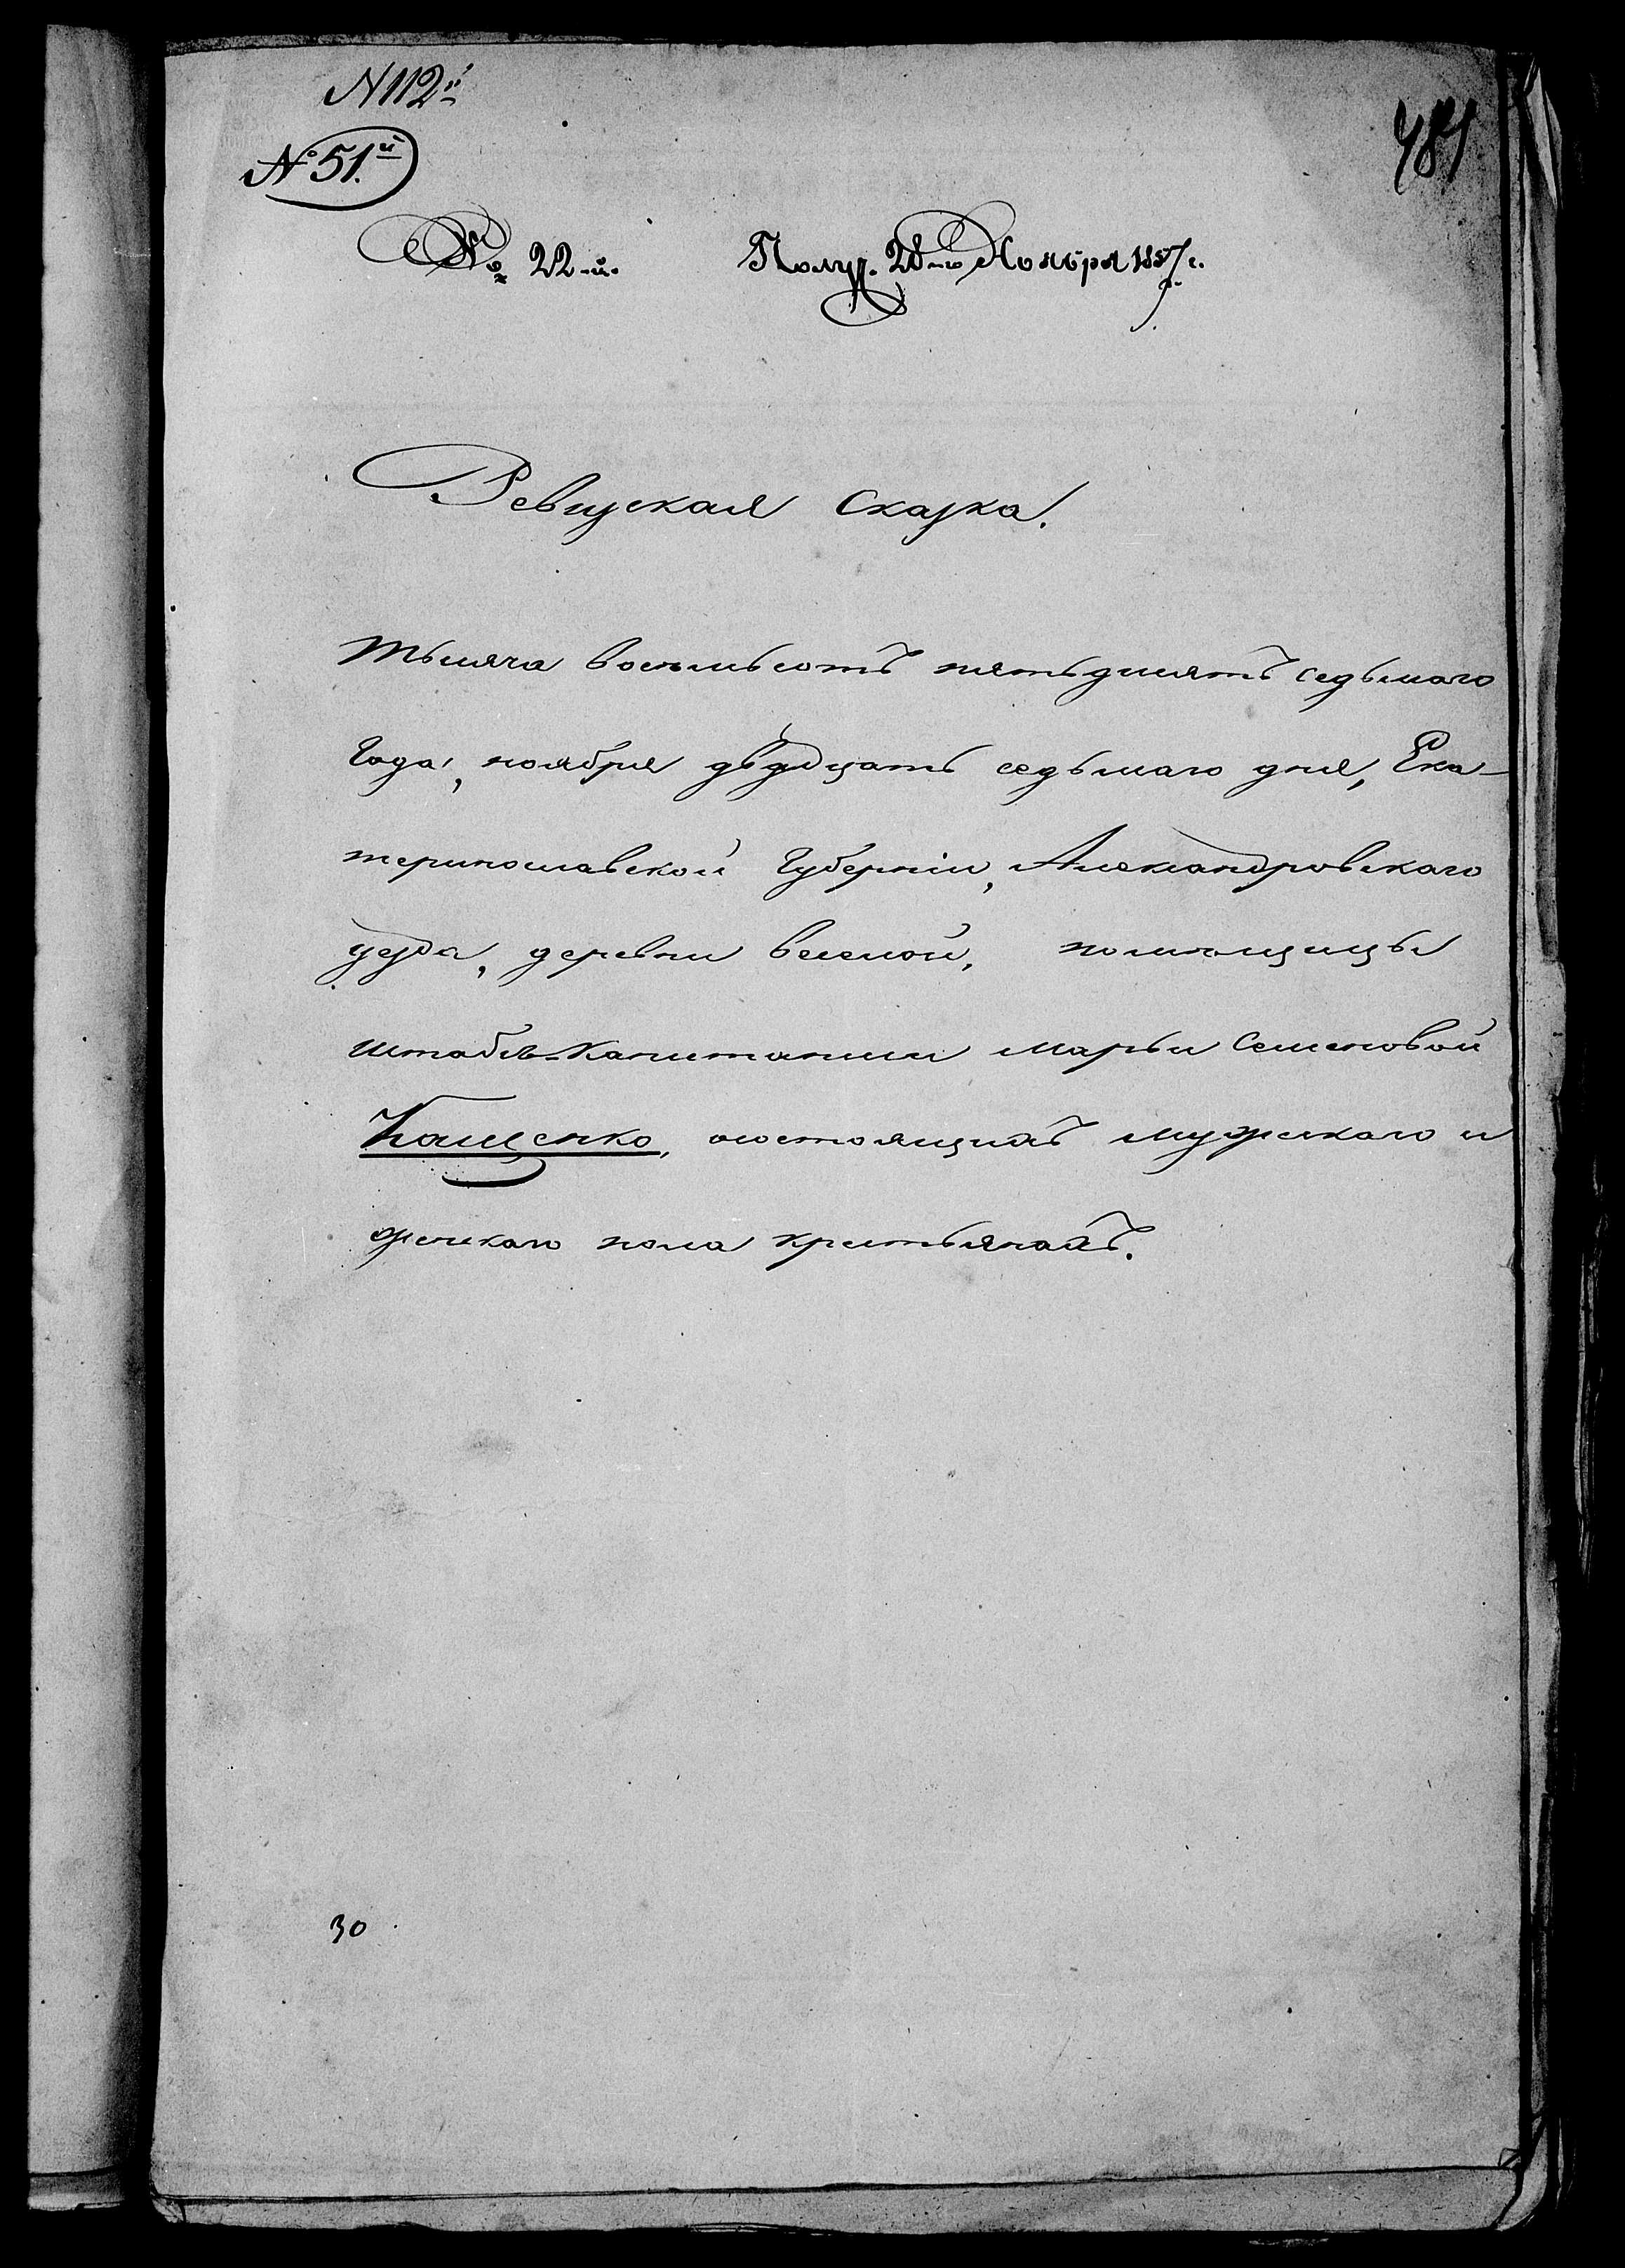 N 112й
481
№ 51.й
№ 22-й.
Получ. 28-го Ноября 1857 г.
Ревизская сказка.
Тысяча восемьсотъ пятьдесятъ седьмаго
года, ноября двадцать седьмаго дня, Ека-
теринославской Губерніи, Александровскаго
уезда, деревни Веселой, помещицы
Штабсъ-Капитанши Марьи Семеновой
Кащенко, о состоящихъ мужескаго и
женскаго пола крестьянахъ.
30